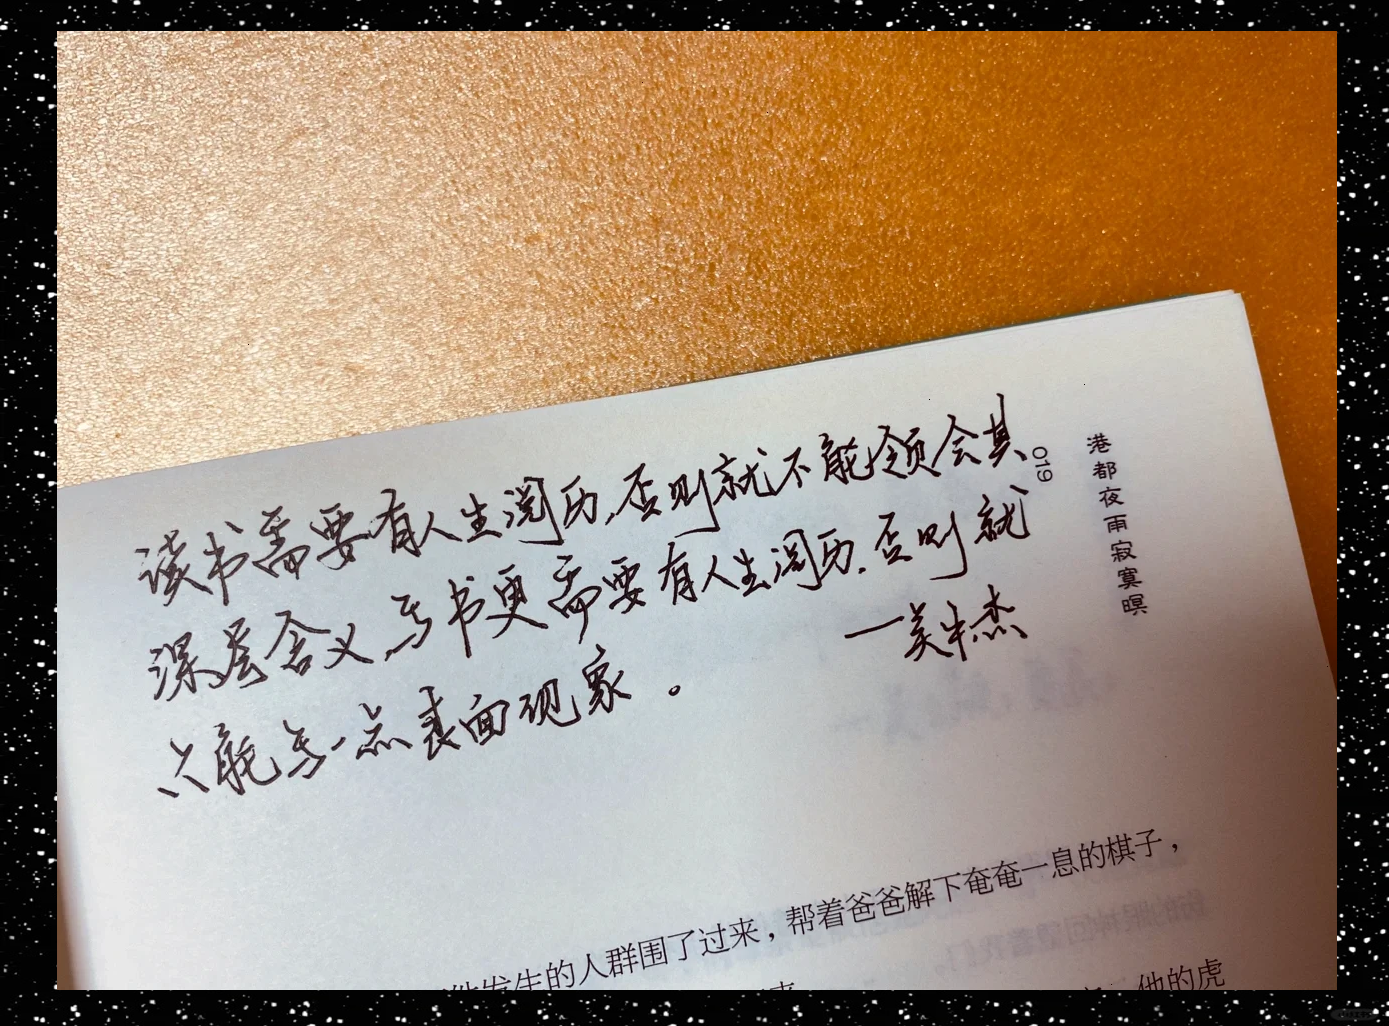 读书需要有人生阅历,否则就不能领会其
深层含义,写书更需要有人生阅历.否则就
只能写一点表面现象。
——吴中杰
019
港都夜雨寂寞暝
发生的人群围了过来,帮着爸爸解下奄奄一息的棋子,
他的虎